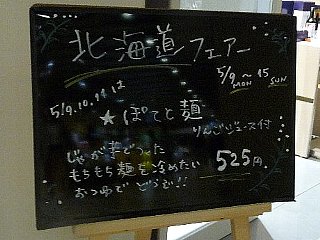 北海道フェアー
5/9 MON 〜 15 SUN
5/9.10.11は
★ぽてと麺
りんごジュース付
じゃが芋でつくった
もちもち麺を冷めたい
おつゆで どうぞ!!
525円